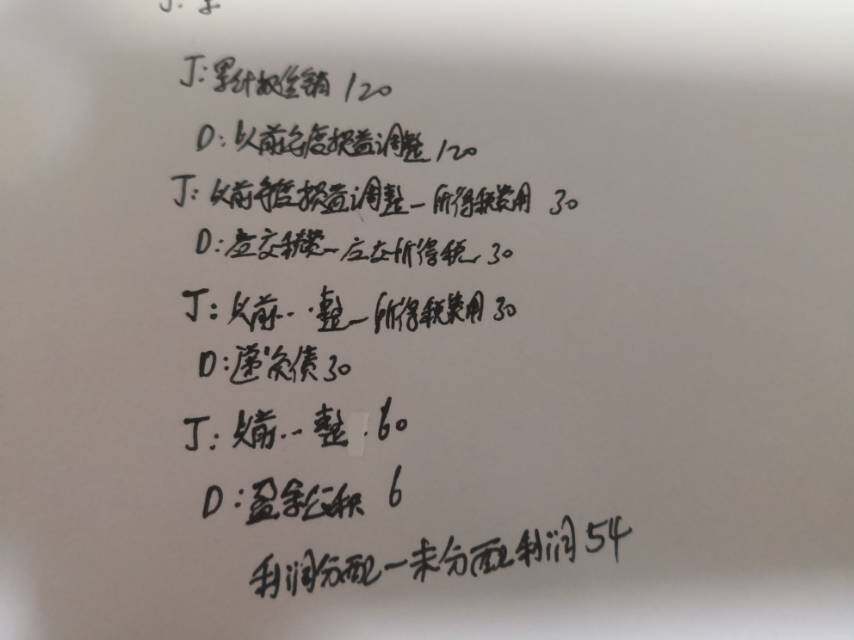 J:累计摊销 120
D:以前年度损益调整 120
J:以前年度损益调整—所得税费用 30
D:应交税费—应交所得税 30
J:以前··整—所得税费用 30
D:递负债 30
J:以前··整·60
D:盈余公积 6
利润分配—未分配利润 54